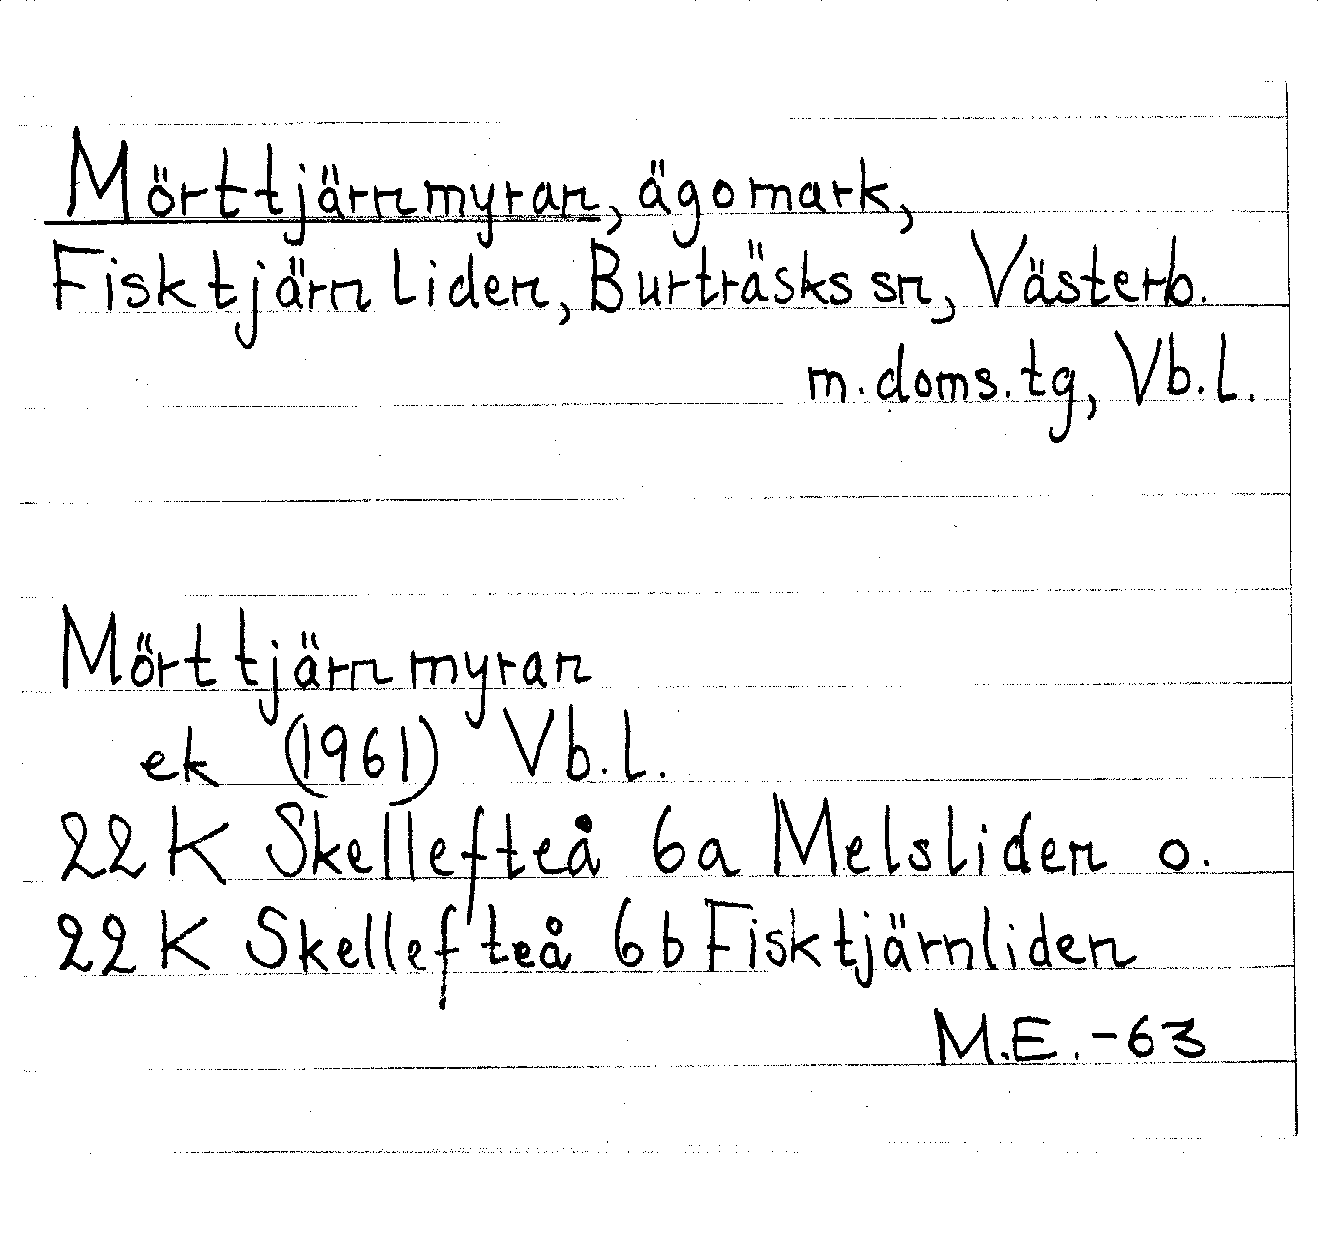 Mörttjärnmyran, ägomark,
Fisktjärnliden, Burträsks sn, Västerb.
m. doms. tg, Vb. l.
Mörttjärnmyran
ek (1961) Vb. l.
22 K Skellefteå 6a Melsliden o.
22 K Skellefteå 6b Fisktjärnliden
M.E. -63